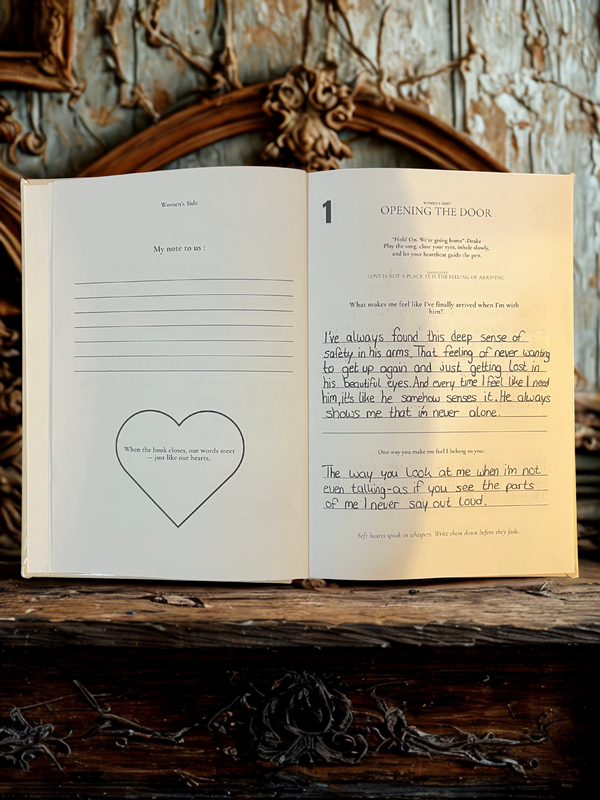 Women's Side
My note to us :
When the book closes, our words meet
— just like our hearts.
1
WOMEN'S SIDE
OPENING THE DOOR
"Hold On, We're going home"-Drake
Play the song, close your eyes, inhale slowly,
and let your heartbeat guide the pen.
LOVE IS NOT A PLACE, IT IS THE FEELING OF ARRIVING.
What makes me feel like I've finally arrived when I'm with
him?
I've always found this deep sense of
safety in his arms. That feeling of never wanting
to get up again and just getting lost in
his beautiful eyes. And every time I feel like I need
him, it's like he somehow senses it. He always
shows me that i'm never alone.
One way you make me feel I belong to you:
The way you look at me when i'm not
even talking-as if you see the parts
of me I never say out loud.
Soft hearts speak in whispers. Write them down before they fade.